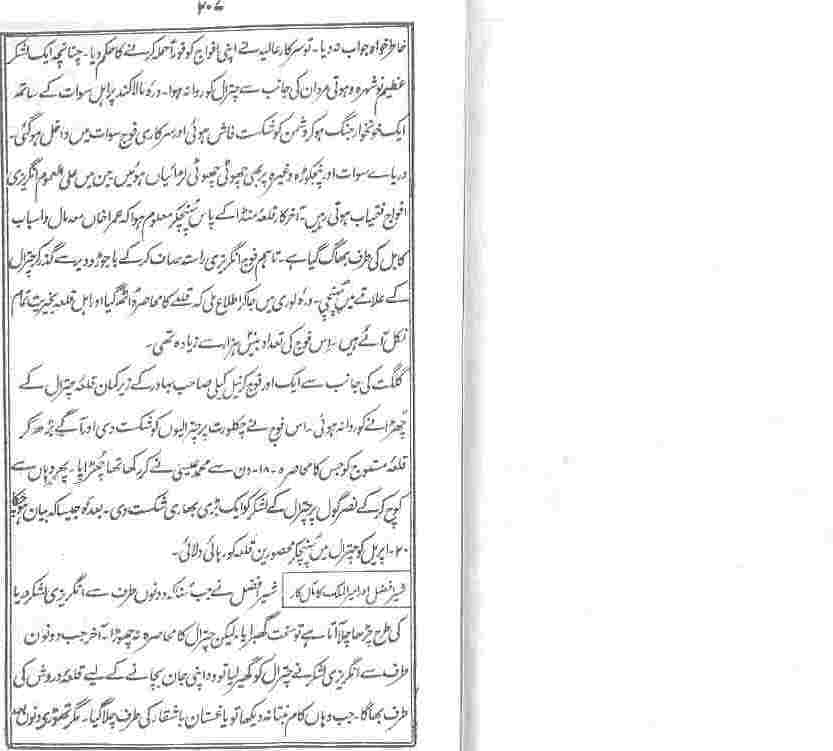 ۲۰۷
خاطر خواہ جواب نہ دیا۔ تو سرکار عالیہ نے اپنی افواج کو فوراً حملہ کرنے کا حکم دیا۔ چنانچہ ایک لشکر
عظیم نوشہرہ و ہوتی مردان کی جانب سے چترال کو روانہ ہوا۔ درہ مالاکنڈ پر اہل سوات کے ساتھ
ایک خونخوار جنگ ہو کر دشمن کو شکست فاش ہوئی اور سرکاری فوج سوات میں داخل ہو گئی۔
دریائے سوات اور پنجکوڑہ وغیرہ پر بھی چھوٹی چھوٹی لڑائیاں ہوئیں جن میں علی العموم انگریزی
افواج فتحیاب ہوتی رہیں۔ آخر کار قلعہ منڈا کے پاس پہنچکر معلوم ہوا کہ عمرا خاں معہ مال و اسباب
کابل کی طرف بھاگ گیا ہے۔ تاہم فوج انگریزی راستہ صاف کر کے باجوڑ و دیر سے گذر کر چترال
کے علاقے میں پہنچی۔ درہ لوری میں جا کر اطلاع ملی کہ قلعے کا محاصرہ اٹھ گیا اور اہل قلعہ بخیریت تمام
نکل آئے ہیں۔ اس فوج کی تعداد بیس ہزار سے زیادہ تھی۔
گلگت کی جانب سے ایک اور فوج کرنیل کیلی صاحب بہادر کے زیر کمان قلعہ چترال کے
چھڑانے کو روانہ ہوئی۔ اس فوج نے چکلوت پر چترالیوں کو شکست دی اور آگے بڑھ کر
قلعہ مستوج کو جس کا محاصرہ ۱۸۔ دن سے محمد عیسیٰ نے کر رکھا تھا چھڑایا۔ پھر وہاں سے
کوچ کر کے نصر گول پر چترال کے لشکر کو ایک بڑی بھاری شکست دی۔ بعدہ جیسا کہ بیان ہو چکا
۲۰۔ اپریل کو چترال میں پہنچکر محصورین قلعہ کو رہائی دلائی۔
شیر افضل اور امیر الملک کا مآل کار شیر افضل نے جب سنا کہ دونوں طرف سے انگریزی لشکر دریا
کی طرح چڑھا چلا آتا ہے تو سخت گھبرایا۔ لیکن چترال کا محاصرہ نہ چھوڑا۔ آخر جب دونوں
طرف سے انگریزی لشکر نے چترال کو گھیر لیا تو وہ اپنی جان بچانے کے لیے قلعہ دروش کی
طرف بھاگا۔ جب وہاں کام بنتا نہ دیکھا تو یاغستان باشقار کی طرف چلا گیا۔ مگر تھوڑی دنوں بعد